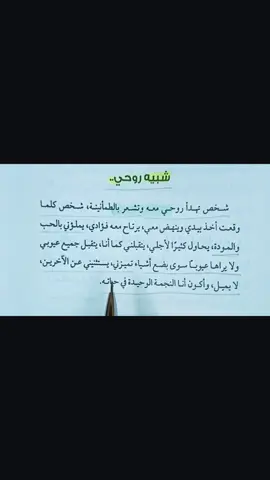 شبيه روحي..
شخص تهدأ روحي معه وتشعر بالطمأنينة، شخص كلما
وقعت أخذ بيدي وينهض معي، يرتاح معه فؤادي، يملؤني بالحب
والمودة، يحاول كثيرًا لأجلي، يتقبلني كما أنا، يتقبل جميع عيوبي
ولا يراها عيوبًا سوى بضع أشياء تميزني، يستثنيني عن الآخرين،
لا يميل، وأكون أنا النجمة الوحيدة في حياته.